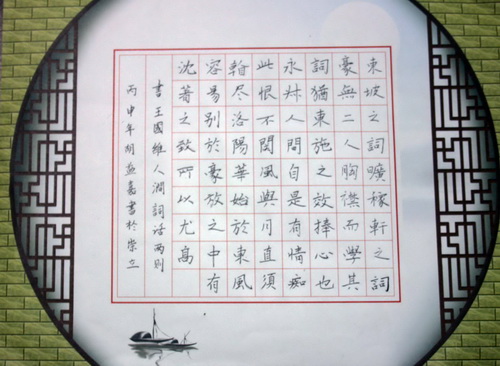 東坡之詞曠稼軒之詞
豪無二人胸襟而學其
詞猶東施之效捧心也
永叔人間自是有情痴
此恨不關風與月直須
尽洛陽華始於東風
容易別於豪放之中有
沈著之致所以尤高
書王國維人澗詞话兩則
丙申年書於崇立